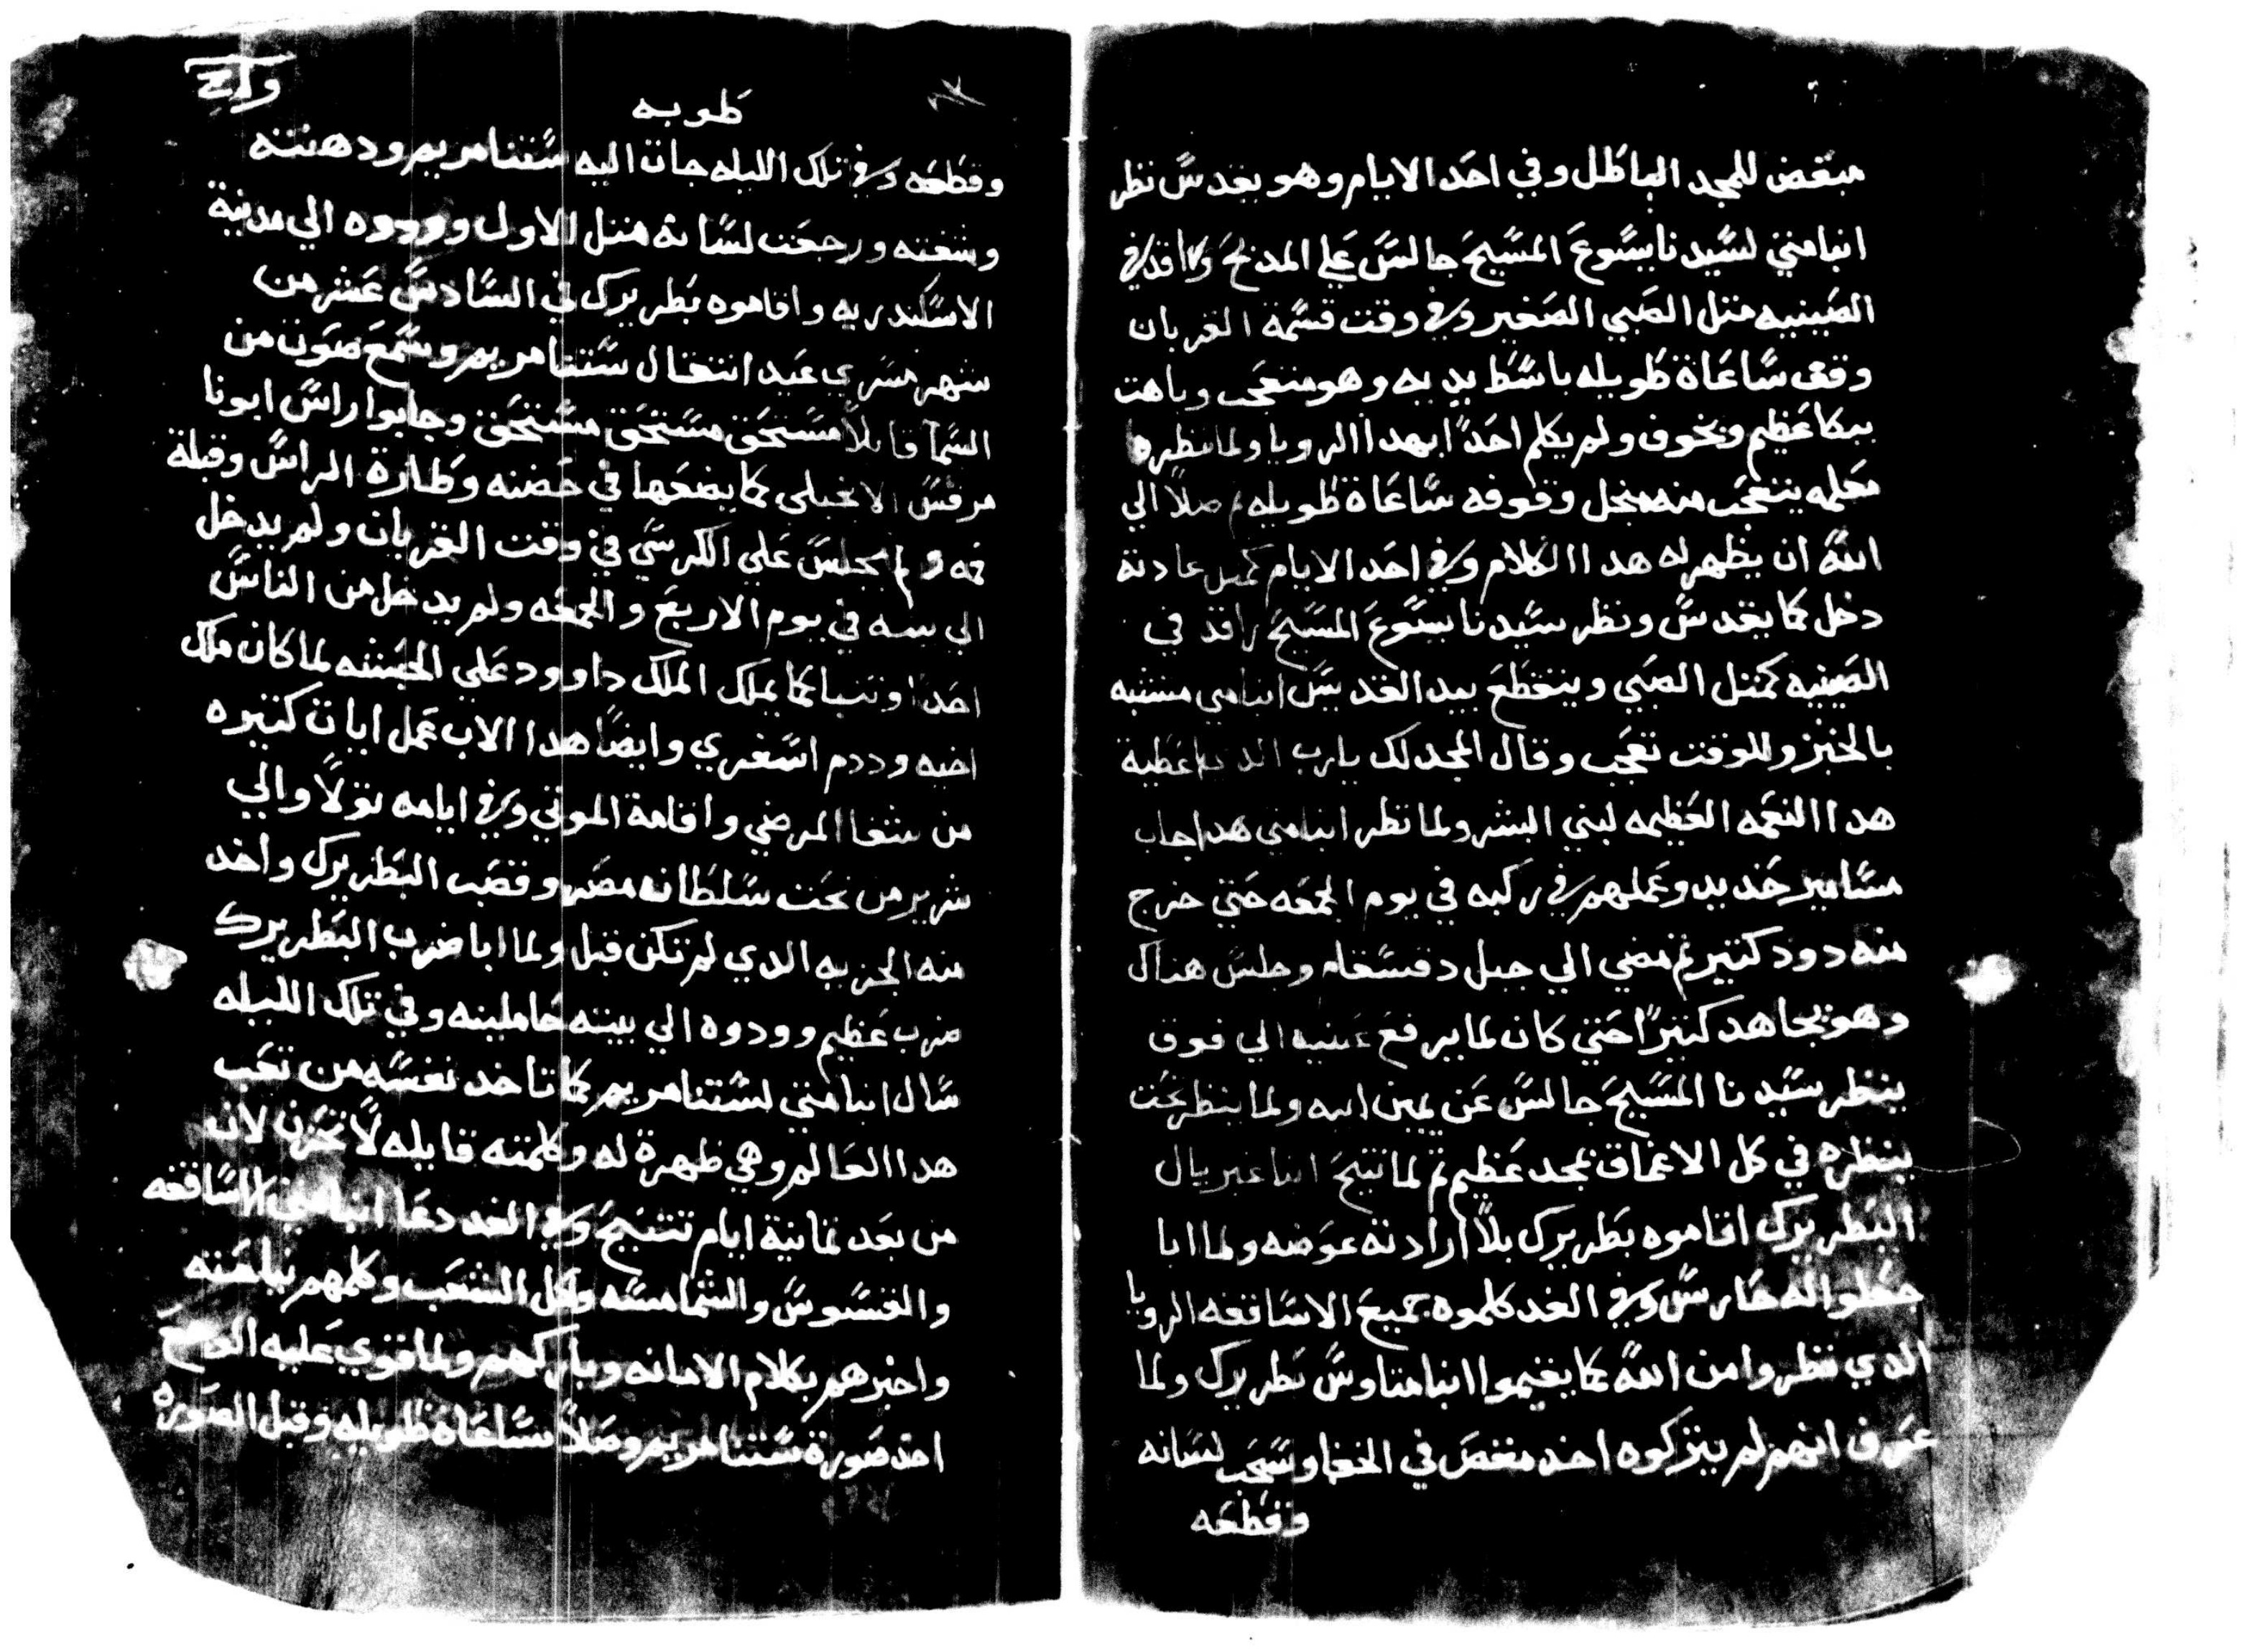 مبغض للمجد الباطل وفي احد الايام وهو يقدس نظر
انبا متي لسيدنا يسوع المسيح جالس علي المدبح وراقد في
الصينيه متل الصبي الصغير وفي وقت قسمة القربان
وقف ساعاة طويله باسط يديه وهو متعجب وباهت
ببكا عظيم وبخوف ولم يكلم احدًا بهدا الرويا ولما نظره
معلمه يتعجب منه من اجل وقوفه ساعاة طويله ثم صلا الي
الله ان يظهر له هدا الكلام وفي احد الايام كمتل عادتة
دخل كما يقدس ونظر سيدنا يسوع المسيح راقد في
الصينيه كمتل الصبي ويتقطع بيد القديس انبا متي مشتبه
بالخبز وللوقت تعجب وقال المجد لك يارب الدي اعطية
هدا النعمه العظيمه لبني البشر ولما نظر انبا متي هدا جاب
مسامير حديد وعملهم في ركبه في يوم الجمعه حتي خرج
منه دود كتير ثم مضي الي جبل دقسقام وجلس هناك
وهو يجاهد كتيرًا حتي كان لما يرفع عينيه الي فوق
ينظر سيدنا المسيح جالس عن يمين ابيه ولما ينظر تحت
ينظره في كل الاعماق بمجد عظيم ثم لما تنيح انبا غبريال
البطريرك اقاموه بطريرك بلا ارادته عوضه ولما ابا
جعلوا له حارس وفي الغد كلموه جميع الاساقفه الرويا
الدي نظروا من الله كما يقيموا انبا متاوس بطريرك ولما
عرف انهم لم يتركوه اخد مقص في الخفا وسحب لسانه
وقطعه
طوبه
وقطعه وفي تلك الليله جات اليه ستنا مريم ودهنته
وشفته ورجعت لسانه متل الاول وودوه الي مدينة
الاسكندريه واقاموه بطريرك في السادس عشر من
شهر مسري عيد انتقال ستنا مريم وسمع صوت من
السمآ قايلًا مستحق مستحق مستحق وجابوا راس ابونا
مرقس الانجيلي كما يضعها في حضنه وطارة الراس وقبلة
فمه ولم يجلس علي الكرسي في وقت القربان ولم يدخل
الي بيته في يوم الاربع والجمعه ولم يدخل من الناس
احدًا وتنبا كما يملك الملك داوود علي الحبشه لما كان ملك
اخيه وددم اسغري وايضًا هدا الاب عمل ايات كتيره
من شفا المرضي واقامة الموتي وفي ايامه تولا والي
شرير من تحت سلطانه مصر وقصب البطريرك واخد
منه الجزيه الدي لم تكن قبل ولما ابا ضرب البطريرك
ضرب عظيم وودوه الي بيته حاملينه وفي تلك الليله
سال انبا متي لستنا مريم كما تاخد نفسه من تعب
هدا العالم وهي ظهرة له وكلمته قايله لا تحزن لان
من بعد تمانية ايام تتنيح وفي الغد دعا انبا متي الاساقفه
والقسوس والشمامسه وكل الشعب وكلمهم نياحته
واخبرهم بكلام الامانه وباركهم ولما قوي عليه الوجع
اخد صورة ستنا مريم وصلا ساعاة طويله وقبل الصوره